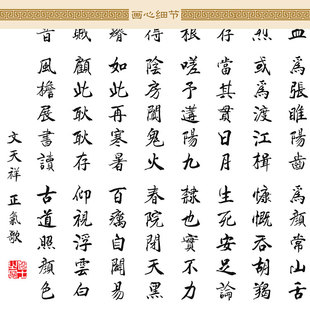 画心细节
血爲張睢陽齒爲顏常山舌
烈或爲渡江楫慷慨吞胡羯
存當其貫日月生死安足論
根嗟予遘陽九隸也實不力
得陰房闃鬼火春院閟天黑
瘠如此再寒暑百癘自闢易
賊顧此耿耿存仰視浮雲白
昔風檐展書讀古道照顏色
文天祥 正氣歌